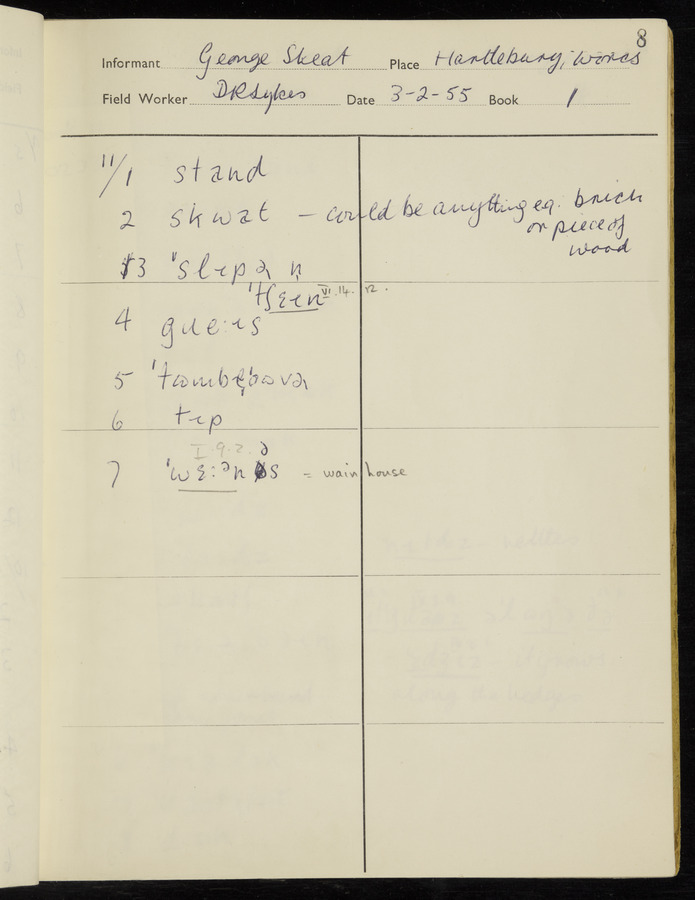 8
Informant George Skeat Place Hartlebury, Worcs
Field Worker DRSykes Date 3-2-55 Book 1
11/1 stand
2 skwat – could be anything eg. brick
or piece of
wood
3 ˈslɪpə n
VI.14. 12.
4
5
6 tɪp
I.9.2. ə
7 ˈwɛːᵊn s = wain house